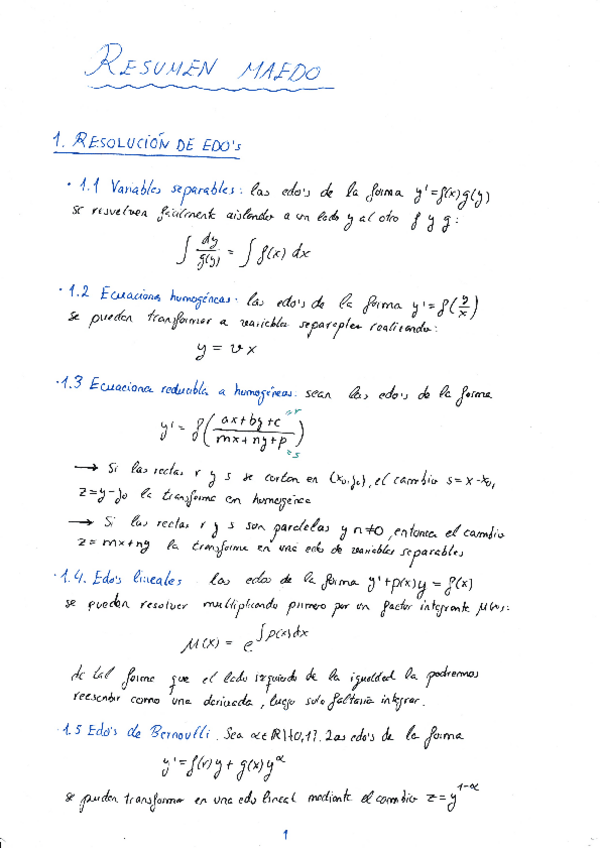 RESUMEN MAEDO
1. RESOLUCIÓN DE EDO's
· 1.1 Variables separables: las edo's de la forma y' = f(x)g(y)
se resuelven fácilmente aislando a un lado y al otro f y g:
∫ dy/g(y) = ∫ f(x) dx
· 1.2 Ecuaciones homogéneas: las edo's de la forma y' = f(y/x)
se pueden transformar a variables separables realizando:
y = v x
· 1.3 Ecuaciones reducibles a homogéneas: sean las edo's de la forma
y' = f( (ax+by+c)/(mx+ny+p) ) =r =s
→ Si las rectas r y s se cortan en (x₀,y₀), el cambio s = x-x₀,
z = y-y₀ la transforma en homogénea
→ Si las rectas r y s son paralelas y n≠0, entonces el cambio
z = mx+ny la transforma en una edo de variables separables
· 1.4. Edo's lineales. Las edos de la forma y'+p(x)y = f(x)
se pueden resolver multiplicando primero por un factor integrante μ(x):
μ(x) = e^∫p(x)dx
de tal forma que el lado izquierdo de la igualdad la podremos
reescribir como una derivada, luego solo faltaría integrar.
· 1.5 Edo's de Bernoulli. Sea α∈ℝ\{0,1}. Las edos de la forma
y' = f(x)y + g(x)y^α
se pueden transformar en una edo lineal mediante el cambio z = y^(1-α)
1